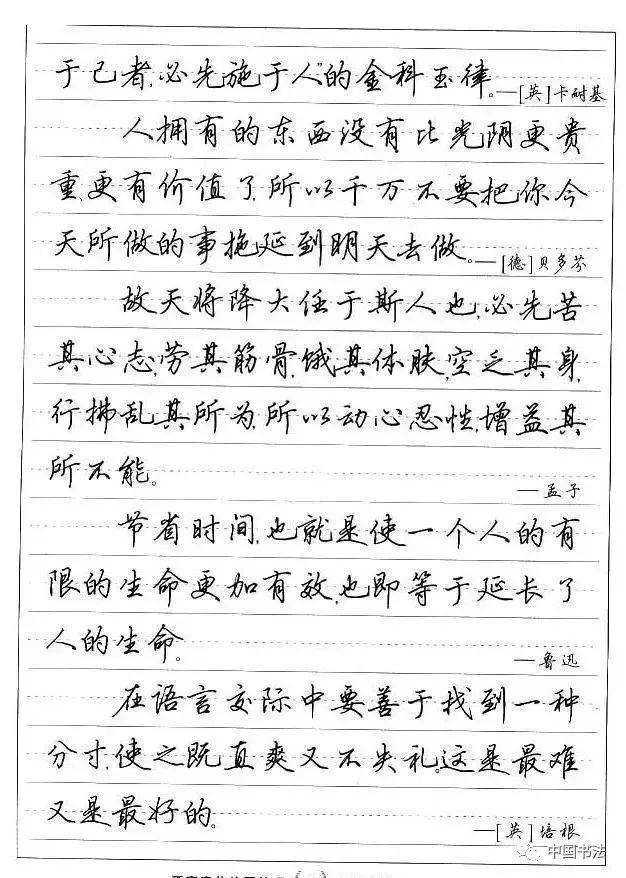 于己者，必先施于人"的金科玉律。—[英]卡耐基
人拥有的东西没有比光阴更贵
重、更有价值了，所以千万不要把你今
天所做的事拖延到明天去做。—[德]贝多芬
故天将降大任于斯人也，必先苦
其心志，劳其筋骨，饿其体肤，空乏其身，
行拂乱其所为，所以动心忍性，增益其
所不能。
—孟子
节省时间，也就是使一个人的有
限的生命更加有效，也即等于延长了
人的生命。
—鲁迅
在语言交际中要善于找到一种
分寸，使之既直爽又不失礼。这是最难
又是最好的。
—[英]培根
中国书法